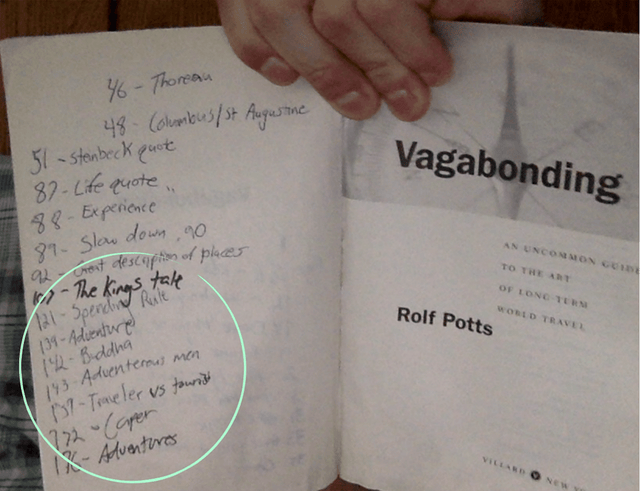 46 - Thoreau
48 - Columbus/St Augustine
51 - stenbeck quote
87 - Life quote
88 - Experience
89 - Slow down, 90
92 - Great description of places
- The Kings tale
121 - Spending Rule
139 - Adventure
142 - Buddha
143 - Adventerous men
- Traveler vs tourist
172 - Caper
176 - Adventures
Vagabonding
AN UNCOMMON GUIDE
TO THE ART
OF LONG-TERM
WORLD TRAVEL
Rolf Potts
VILLARD NEW